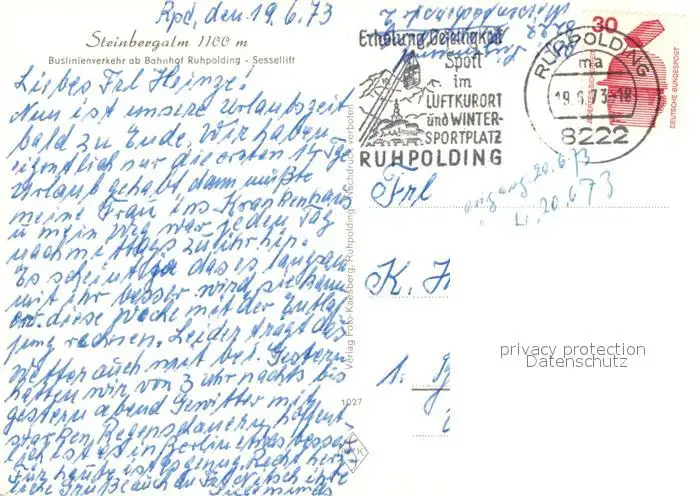 Rpd, den 19.6.73
Steinbergalm 1100 m
Buslinienverkehr ab Bahnhof Ruhpolding - Sessellift
Liebes Frl Heinze!
Nun ist unsere Urlaubszeit
bald zu Ende. Wir haben
eigentlich nur die ersten 14 Tge
Urlaub gehabt dann mußte
meine Frau ins Krankenhaus
u mein Weg war jeden Tag
nachmittags zu ihr hin.
Es scheint ja das es langsam
mit ihr besser wird sie kann
diese Woche mit der Entlas
sung rechnen. Leider tragt das
Wetter auch mit bei. Gestern
hatten wir von 3 uhr nachts bis
gestern abend Gewitter mit
starken Regenschauern, hoffent
lich ist es in Berlin etwas besser
Für heute ist es genug. Recht herz
liche Grüße auch an Frl. ihre
Verlag Foto-Kaesberg, Ruhpolding - Nachdruck verboten
1027
Erholung, Geselligkeit
Sport
im
LUFTKURORT
und WINTER-
SPORTPLATZ
RUHPOLDING
RUHPOLDING
ma
19.6.73-18
8222
30
JEDERZEIT SICHERHEIT
DEUTSCHE BUNDESPOST
20.6.73
20.6.73
Frl
K. H
1.
privacy protection
Datenschutz